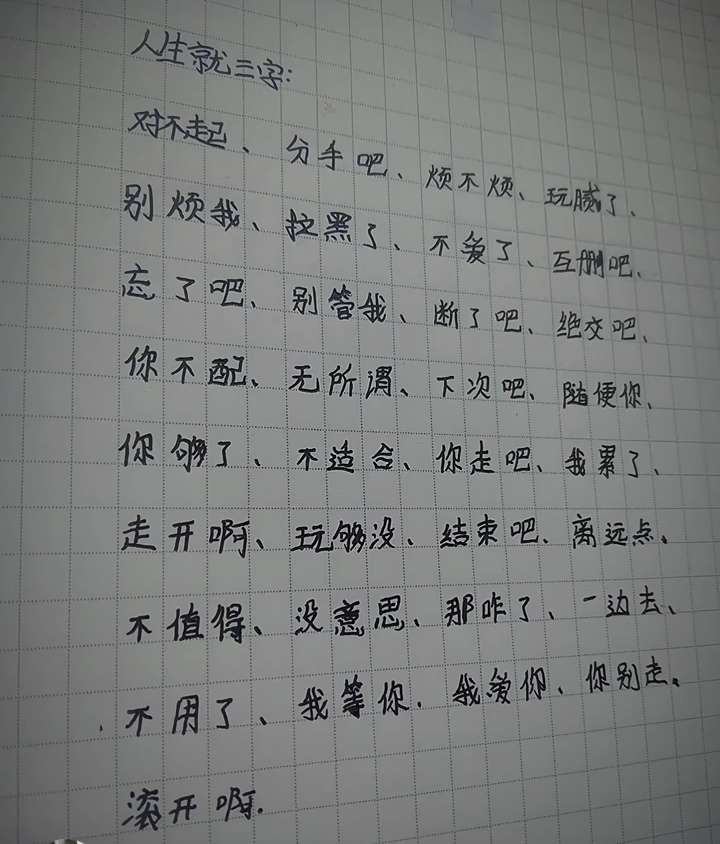 人生就三字:
对不起、分手吧、烦不烦、玩腻了、
别烦我、拉黑了、不爱了、互删吧、
忘了吧、别管我、断了吧、绝交吧、
你不配、无所谓、下次吧、随便你、
你够了、不适合、你走吧、我累了、
走开啊、玩够没、结束吧、离远点、
不值得、没意思、那咋了、一边去、
不用了、我等你、我爱你、你别走。
滚开啊.